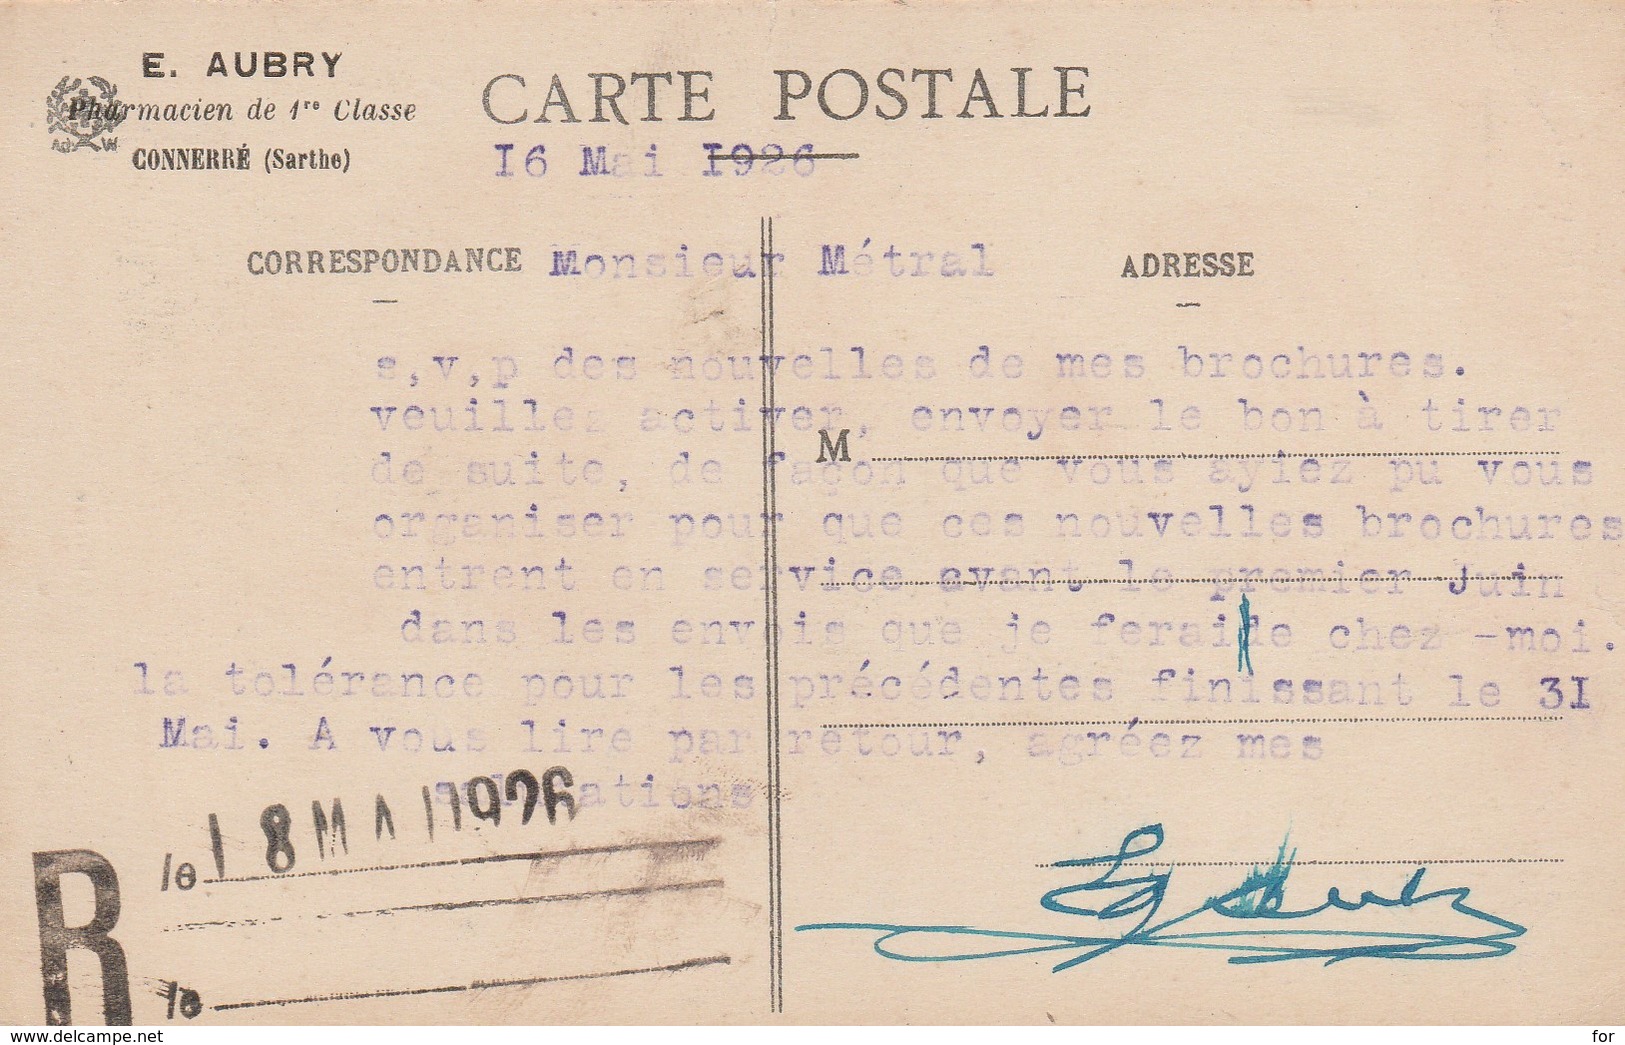 E. AUBRY
Pharmacien de 1re Classe
CONNERRÉ (Sarthe)
Ad W
CARTE POSTALE
I6 Mai I926
CORRESPONDANCE
Monsieur Métral
ADRESSE
s,v,p des nouvelles de mes brochures.
veuillez activer, envoyer le bon à tirer
M
de suite, de façon que vous ayiez pu vous
organiser pour que ces nouvelles brochures
entrent en service avant le premier Juin
dans les envois que je ferai de chez -moi.
la tolérance pour les précédentes finissant le 3I
Mai. A vous lire par retour, agréez mes
salutations
R
le 18 MAI 1926
le
E Aubry
www.delcampe.net
for